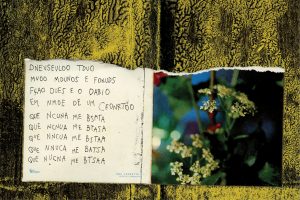 DNEVSEULOO TDUO
MVDO MOLNOS E FONUDS
FLAO DUES E O DABIO
EM NMOE DE UM CFONRTÔO
QUE NCUNA ME BSATA
QUE NCNUA ME BTASA
QUE NNCUA ME BSTAA
QUE NNUCA ME BATSA
QUE NÚCNA ME BTSAA